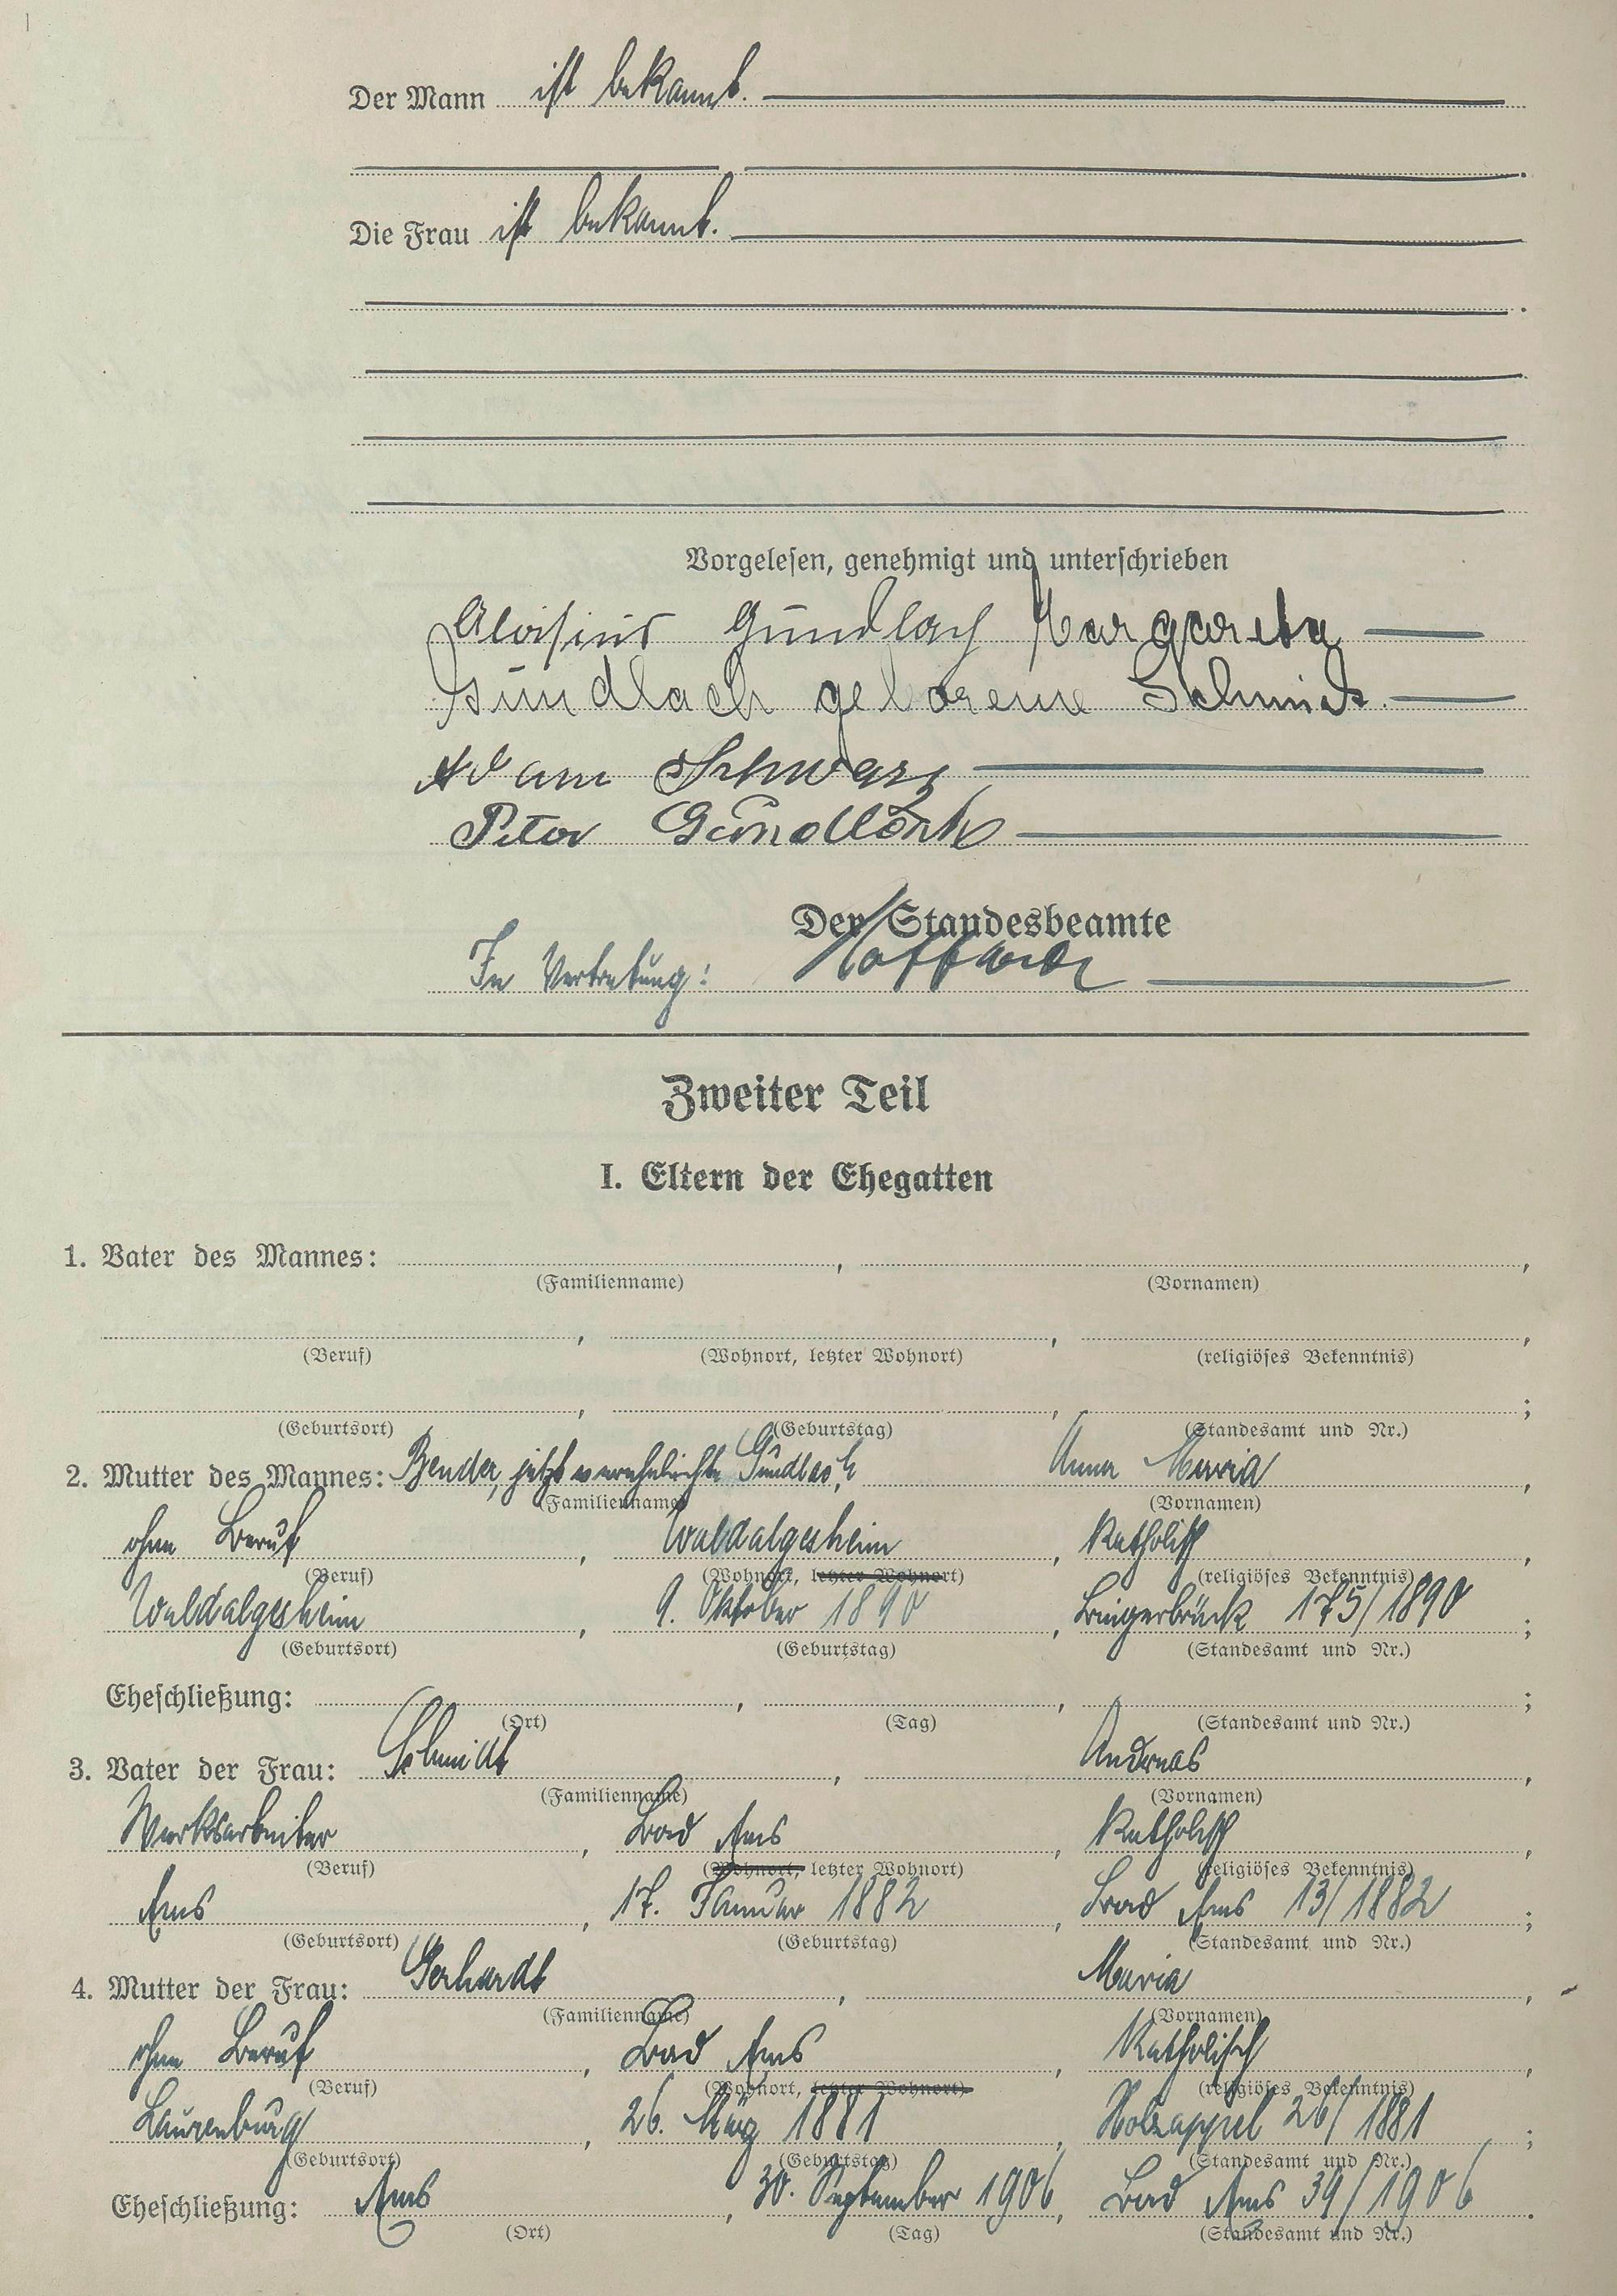 Der Mann ist bekannt.
Die Frau ist bekannt.
Vorgelesen, genehmigt und unterschrieben
Aloisius Gundlach Margareta
Gundlach geborene Schmidt.
Adam Schwarz
Peter Gundlach
Der Standesbeamte
In Vertretung:
Zweiter Teil
I. Eltern der Ehegatten
1. Vater des Mannes: , ,
(Familienname) (Vornamen)
, , ,
(Beruf) (Wohnort, letzter Wohnort) (religiöses Bekenntnis)
, , ;
(Geburtsort) (Geburtstag) (Standesamt und Nr.)
2. Mutter des Mannes: Bender, jetzt verehelichte Gundlach Anna Maria ,
(Familienname) (Vornamen)
ohne Beruf , Waldalgesheim , katholisch ,
(Beruf) (Wohnort, letzter Wohnort) (religiöses Bekenntnis)
Waldalgesheim , 9. Oktober 1890 , Bingerbrück 175/1890 ;
(Geburtsort) (Geburtstag) (Standesamt und Nr.)
Eheschließung: , , ;
(Ort) (Tag) (Standesamt und Nr.)
3. Vater der Frau: Schmidt , Andreas ,
(Familienname) (Vornamen)
Werksarbeiter , Bad Ems , katholisch ,
(Beruf) (Wohnort, letzter Wohnort) (religiöses Bekenntnis)
Ems , 17. Januar 1882 , Bad Ems 13/1882 ;
(Geburtsort) (Geburtstag) (Standesamt und Nr.)
4. Mutter der Frau: Gerhardt , Maria ,
(Familienname) (Vornamen)
ohne Beruf , Bad Ems , katholisch ,
(Beruf) (Wohnort, letzter Wohnort) (religiöses Bekenntnis)
Laurenburg , 26. März 1881 , Holzappel 26/1881 ;
(Geburtsort) (Geburtstag) (Standesamt und Nr.)
Eheschließung: Ems , 30. September 1906 , Bad Ems 39/1906 .
(Ort) (Tag) (Standesamt und Nr.)